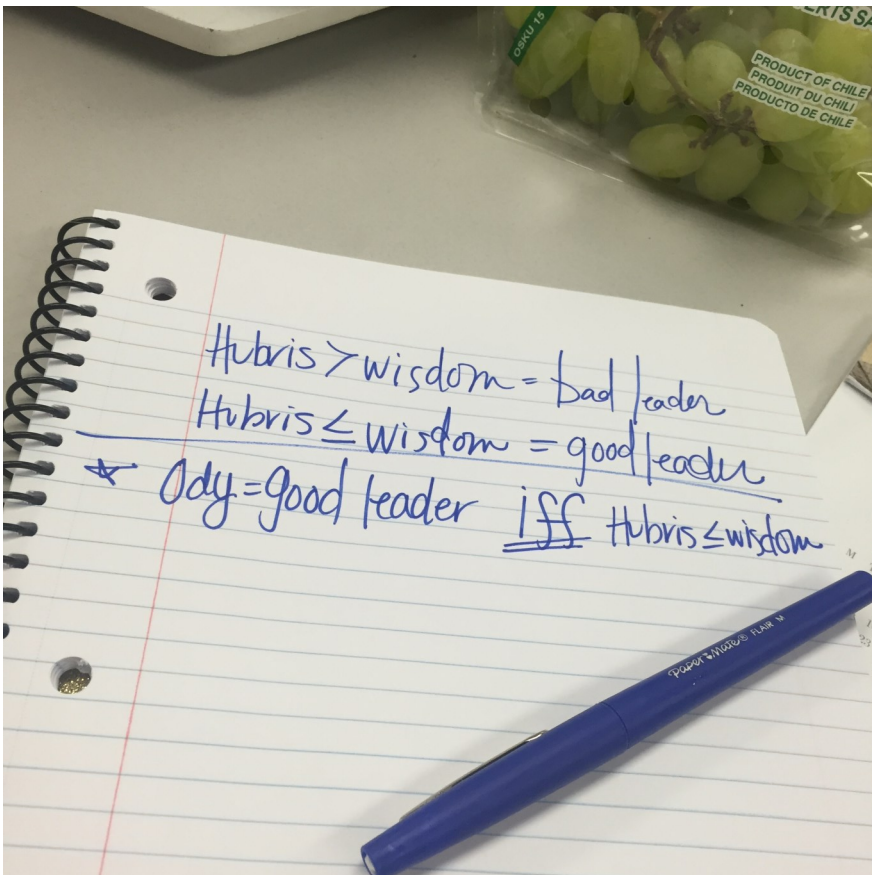 OSKU 15
ERTS SA
PRODUCT OF CHILE
PRODUIT DU CHILI
PRODUCTO DE CHILE
Hubris > wisdom = bad leader
Hubris ≤ wisdom = good leader
☆ Ody = good leader iff Hubris ≤ wisdom
Paper Mate® FLAIR M
M